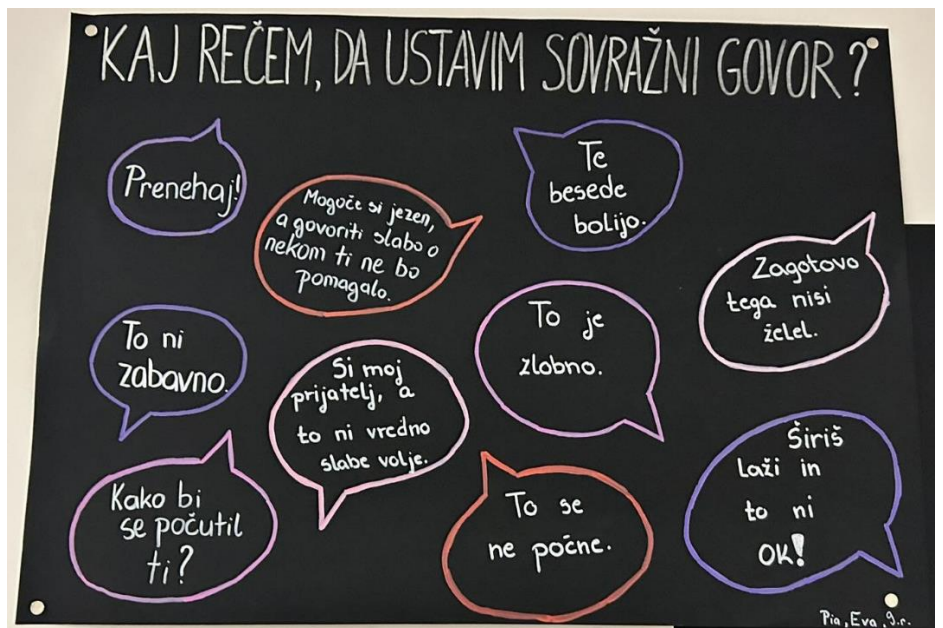 KAJ REČEM, DA USTAVIM SOVRAŽNI GOVOR?
Prenehaj!
Mogoče si jezen,
a govoriti slabo o
nekom ti ne bo
pomagalo.
Te
besede
bolijo.
Zagotovo
tega nisi
želel.
To ni
zabavno.
Si moj
prijatelj, a
to ni vredno
slabe volje.
To je
zlobno.
Kako bi
se počutil
ti?
To se
ne počne.
Širiš
laži in
to ni
OK!
Pia, Eva, 9.r.